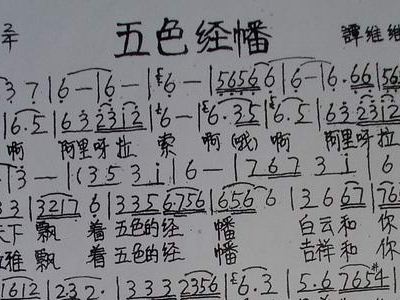 五色经幡
譚維維
3 7 | 6 — | 6 — | 6 — | 5656 6 | 6 — | 6 · 66 | 56
6 · 5 | 63 2312 | 6 — | 6 · 35 | 6 · 5 | 63 2312 | 6
啊 阿里呀拉 索 啊(哦) 啊 阿里呀拉
| 3 — | (3 5 3 i | 6 — | 7 6 7 3 i | 6
33 | 3217 6 | 335 6756 | 656 6 | 3 667 | 765
天下飘 着五色的经 幡 白云和你
拉雅飘 着五色的经 幡 吉祥和你
1612 | 232 · | 333 2356 | 6 · 3 | 5 · 6 7654 |